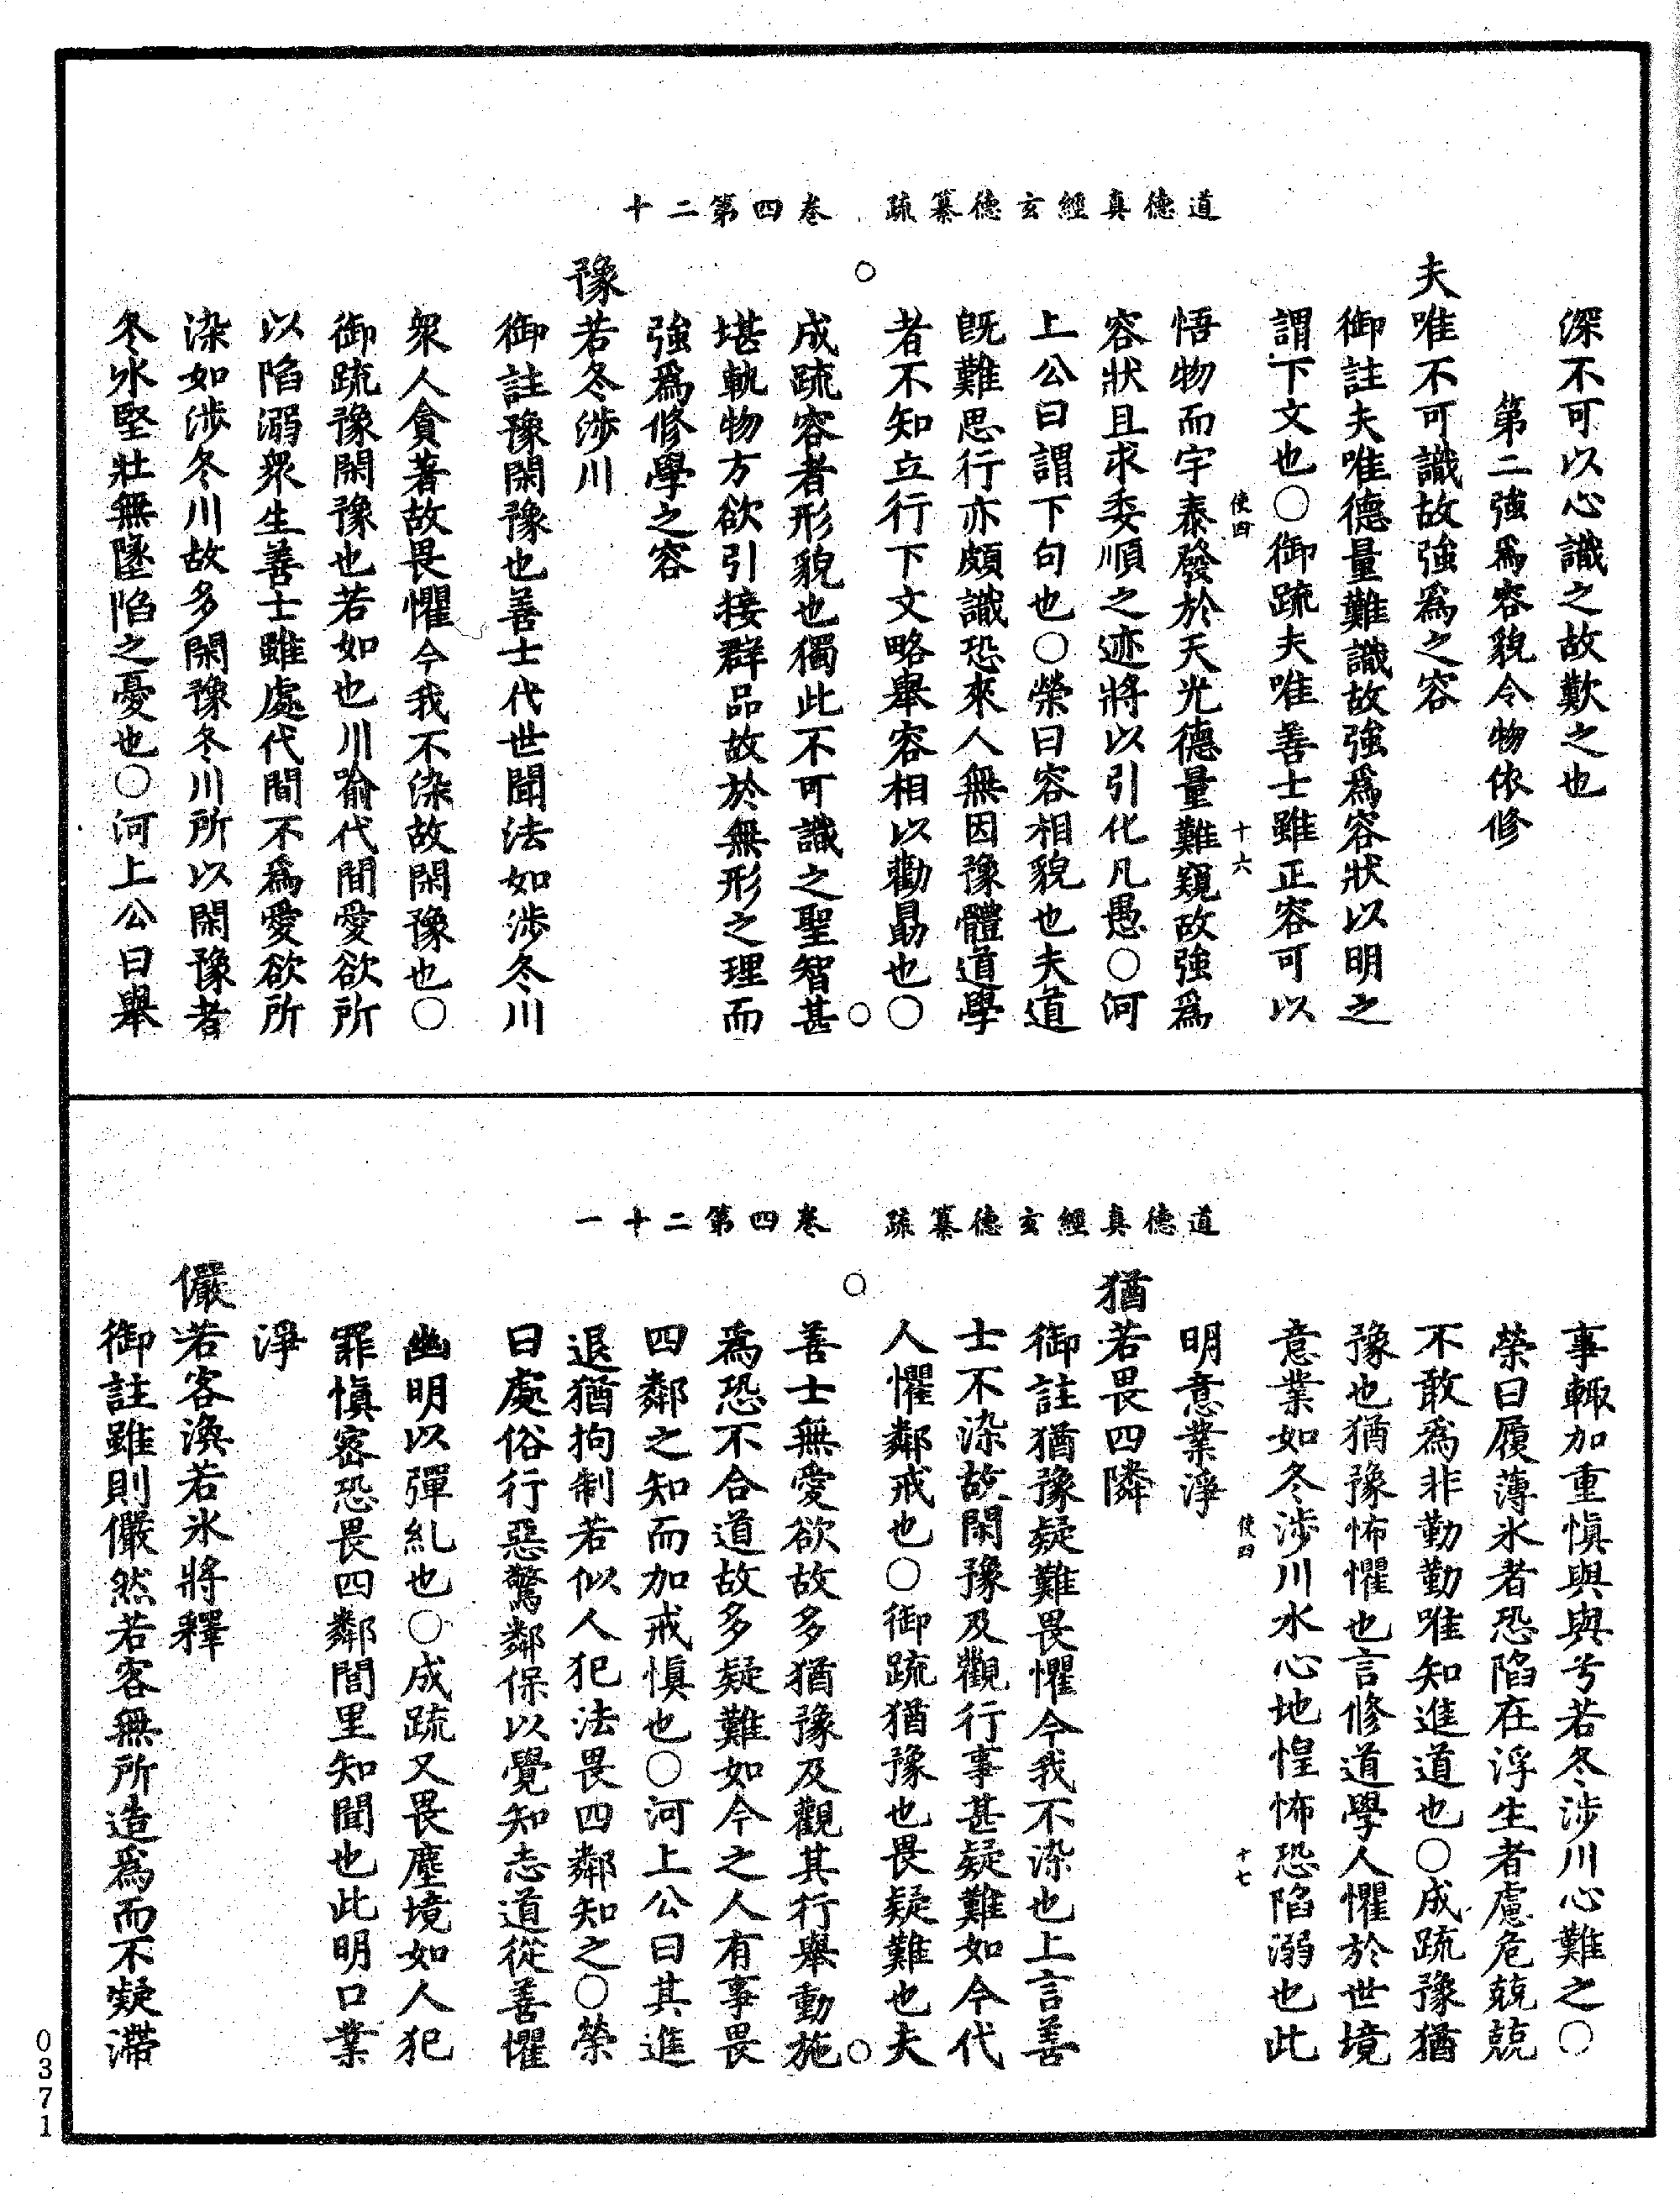 道德真經玄德纂疏　卷四第二十
深不可以心識之故歎之也
第二強爲容貌令物依修
夫唯不可識故強爲之容
御註夫唯德量難識故強爲容狀以明之
謂下文也○御疏夫唯善士雖正容可以
使四　十六
悟物而宇泰發於天光德量難窺故強爲
容狀且求委順之迹將以引化凡愚○河
上公曰謂下句也○榮曰容相貌也夫道
旣難思行亦頗識恐來人無因豫體道學
者不知立行下文略舉容相以勸勗也○
成疏容者形貌也獨此不可識之聖智甚
堪軌物方欲引接群品故於無形之理而
強爲修學之容
豫若冬涉川
御註豫閑豫也善士代世聞法如涉冬川
衆人貪著故畏懼今我不染故閑豫也○
御疏豫閑豫也若如也川喻代間愛欲所
以陷溺衆生善士雖處代間不爲愛欲所
染如涉冬川故多閑豫冬川所以閑豫者
冬冰堅壯無墜陷之憂也○河上公曰舉
道德真經玄德纂疏　卷四第二十一
事輙加重慎與與兮若冬涉川心難之○
榮曰履薄氷者恐陷在浮生者慮危兢兢
不敢爲非勤勤唯知進道也○成疏豫猶
豫也猶豫怖懼也言修道學人懼於世境
意業如冬涉川水心地惶怖恐陷溺也此
使四　十七
明意業淨
猶若畏四隣
御註猶豫疑難畏懼今我不染也上言善
士不染故閑豫及觀行事甚疑難如今代
人懼鄰戒也○御疏猶豫也畏疑難也夫
善士無愛欲故多猶豫及觀其行舉動施
爲恐不合道故多疑難如今之人有事畏
四鄰之知而加戒慎也○河上公曰其進
退猶拘制若似人犯法畏四鄰知之○榮
曰處俗行惡驚鄰保以覺知志道從善懼
幽明以彈糺也○成疏又畏塵境如人犯
罪慎密恐畏四鄰閭里知聞也此明口業
淨
儼若客渙若氷將釋
御註雖則儼然若客無所造爲而不凝滯
0371